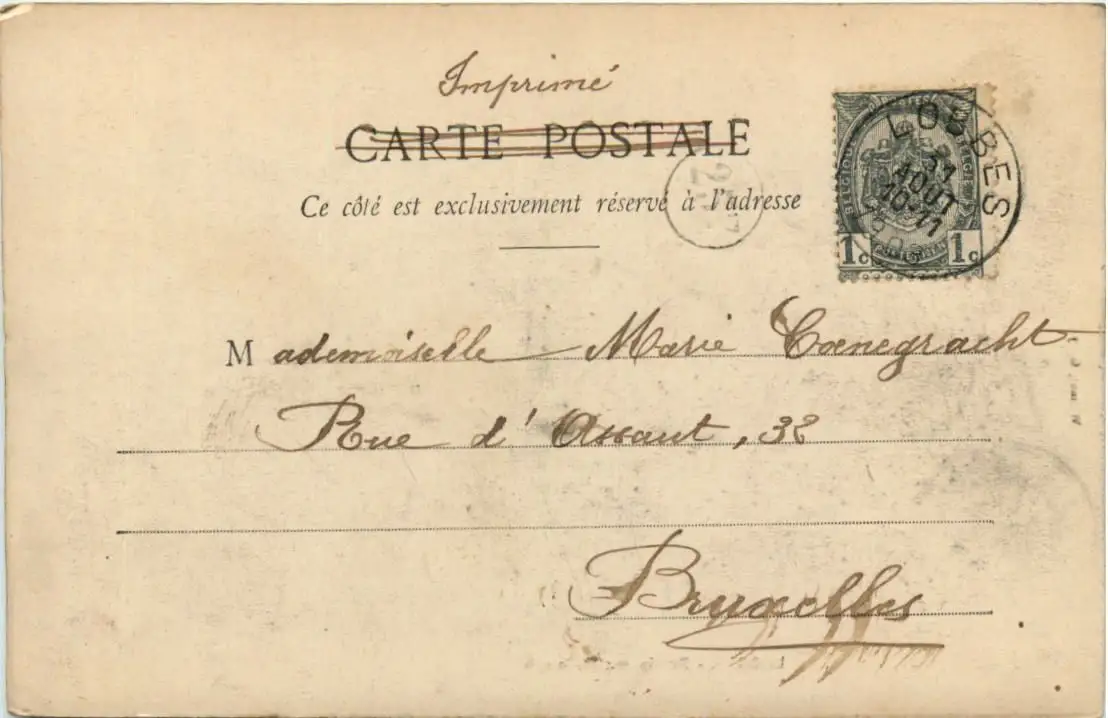 Imprimé
CARTE POSTALE
Ce côté est exclusivement réservé à l'adresse
LOBBES
31
AOUT
10-11
BELGIQUE
1c 1c
Mademoiselle Marie Coenegracht
Rue d'Assaut, 32
Bruxelles